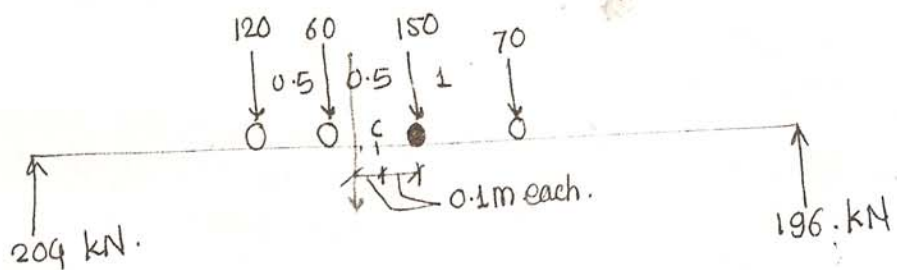 120 60 150 70
0.5 0.5 1
C
0.1m each.
204 kN.
196. kN